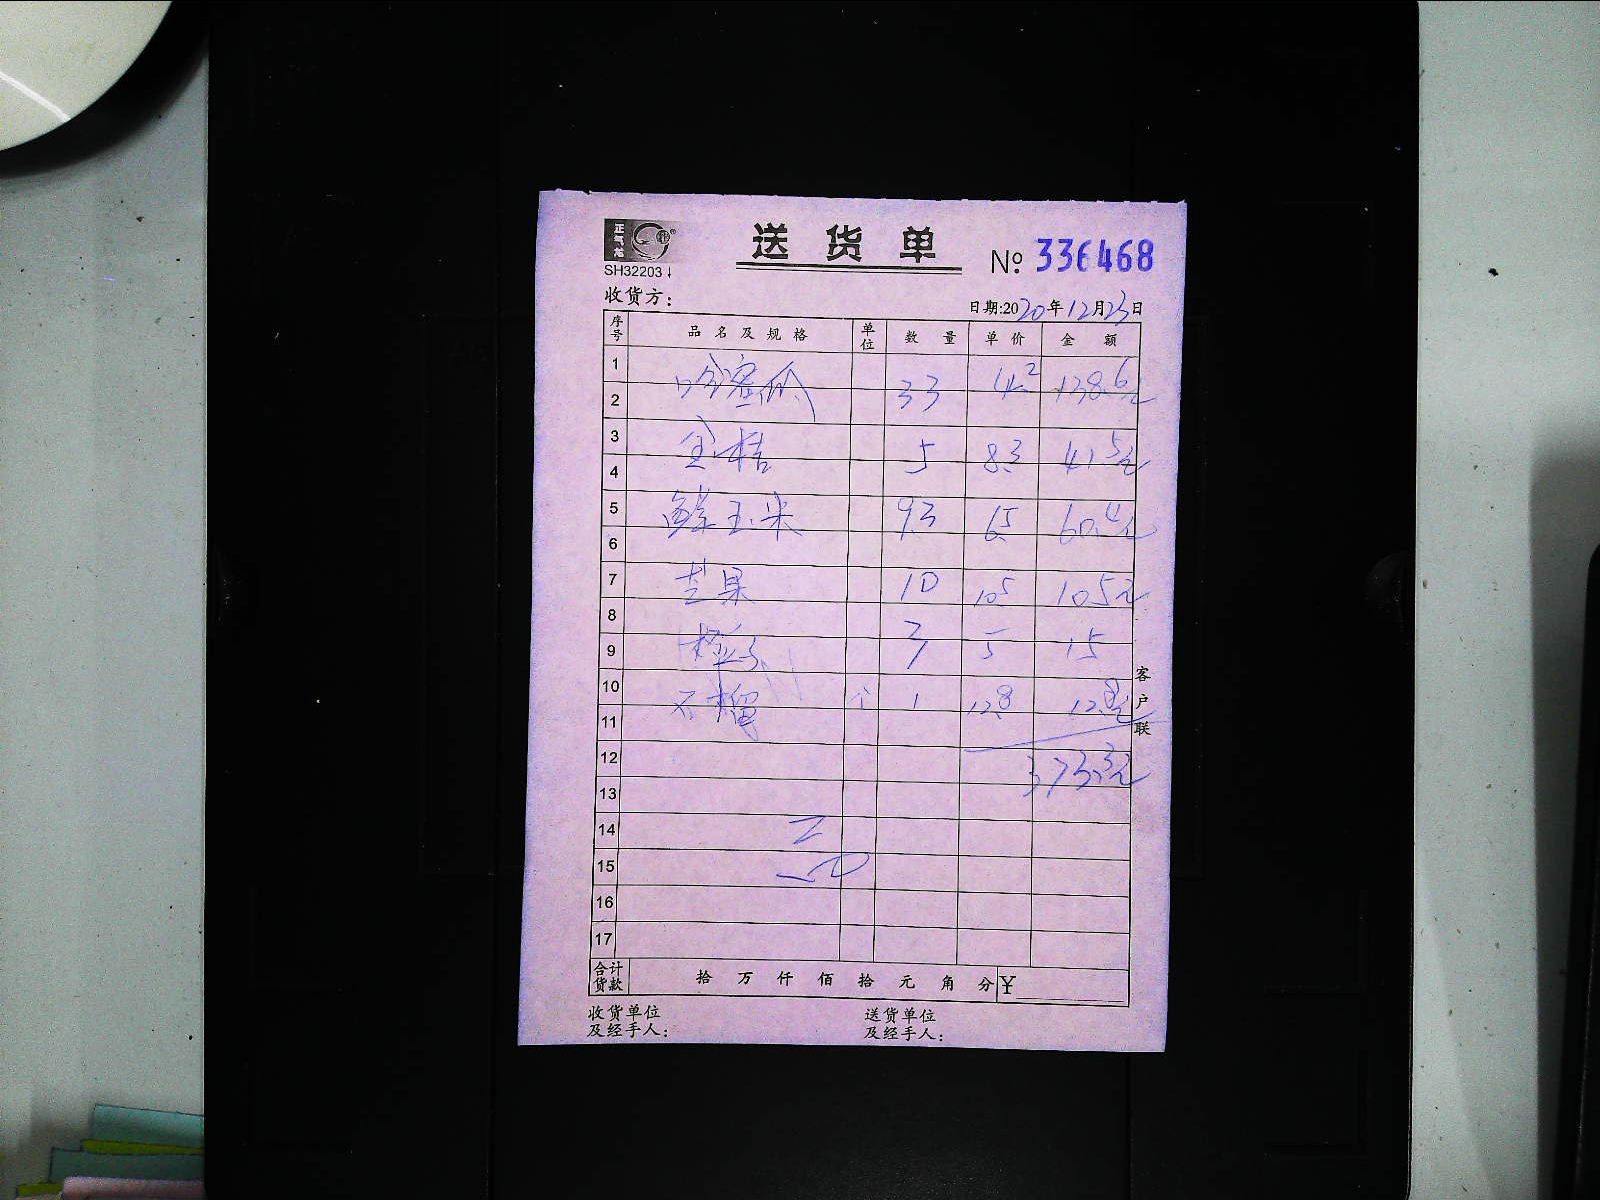 正气龙
送货单 № 336468
SH32203↓
收货方: 日期:2020年12月23日
序号 品名及规格 单位 数量 单价 金额
1 哈密瓜 33 4.2 138.6元
2
3 金桔 5 8.3 41.5元
4
5 鲜玉米 9.3 6.5 60.4元
6
7 芒果 10 10.5 105元
8
9 橙子 3 5 15
10 石榴 个 1 12.8 12.8元
11
12 373.3元
13
14
15
16
17
合计货款 拾万仟佰拾元角分 ¥
收货单位 送货单位
及经手人: 及经手人:
客户联